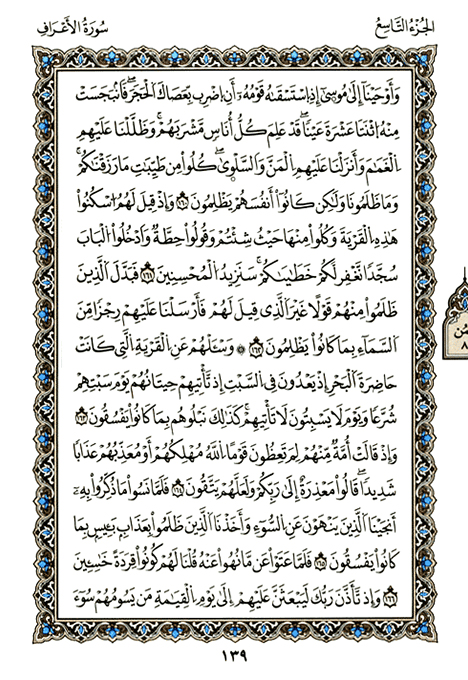 الجزء التاسع
سورة الأعراف
وأوحينا إلى موسى إذ استسقنه قومه أن اضرب بعصاك الحجر فانبجست
منه اثنتا عشرة عينا قد علم كل أناس مشربهم وظللنا عليهم
الغمم وأنزلنا عليهم المن والسلوى كلوا من طيبت ما رزقنكم
وما ظلمونا ولكن كانوا أنفسهم يظلمون ١٦٠ وإذ قيل لهم اسكنوا
هذه القرية وكلوا منها حيث شئتم وقولوا حطة وادخلوا الباب
سجدا تغفر لكم خطيتكم سنزيد المحسنين ١٦١ فبدل الذين
ظلموا منهم قولا غير الذي قيل لهم فأرسلنا عليهم رجزا من
السماء بما كانوا يظلمون ١٦٢ وسئلهم عن القرية التي كانت
حاضرة البحر إذ يعدون في السبت إذ تأتيهم حيتانهم يوم سبتهم
شرعا ويوم لا يسبتون لا تأتيهم كذلك نبلوهم بما كانوا يفسقون ١٦٣
وإذ قالت أمة منهم لم تعظون قوما الله مهلكهم أو معذبهم عذابا
شديدا قالوا معذرة إلى ربكم ولعلهم يتقون ١٦٤ فلما نسوا ما ذكروا به
أنجينا الذين ينهون عن السوء وأخذنا الذين ظلموا بعذاب بيس بما
كانوا يفسقون ١٦٥ فلما عتوا عن ما نهوا عنه قلنا لهم كونوا قردة خسين
١٦٦ وإذ تأذن ربك ليبعثن عليهم إلى يوم القيمة من يسومهم سوء
١٣٩